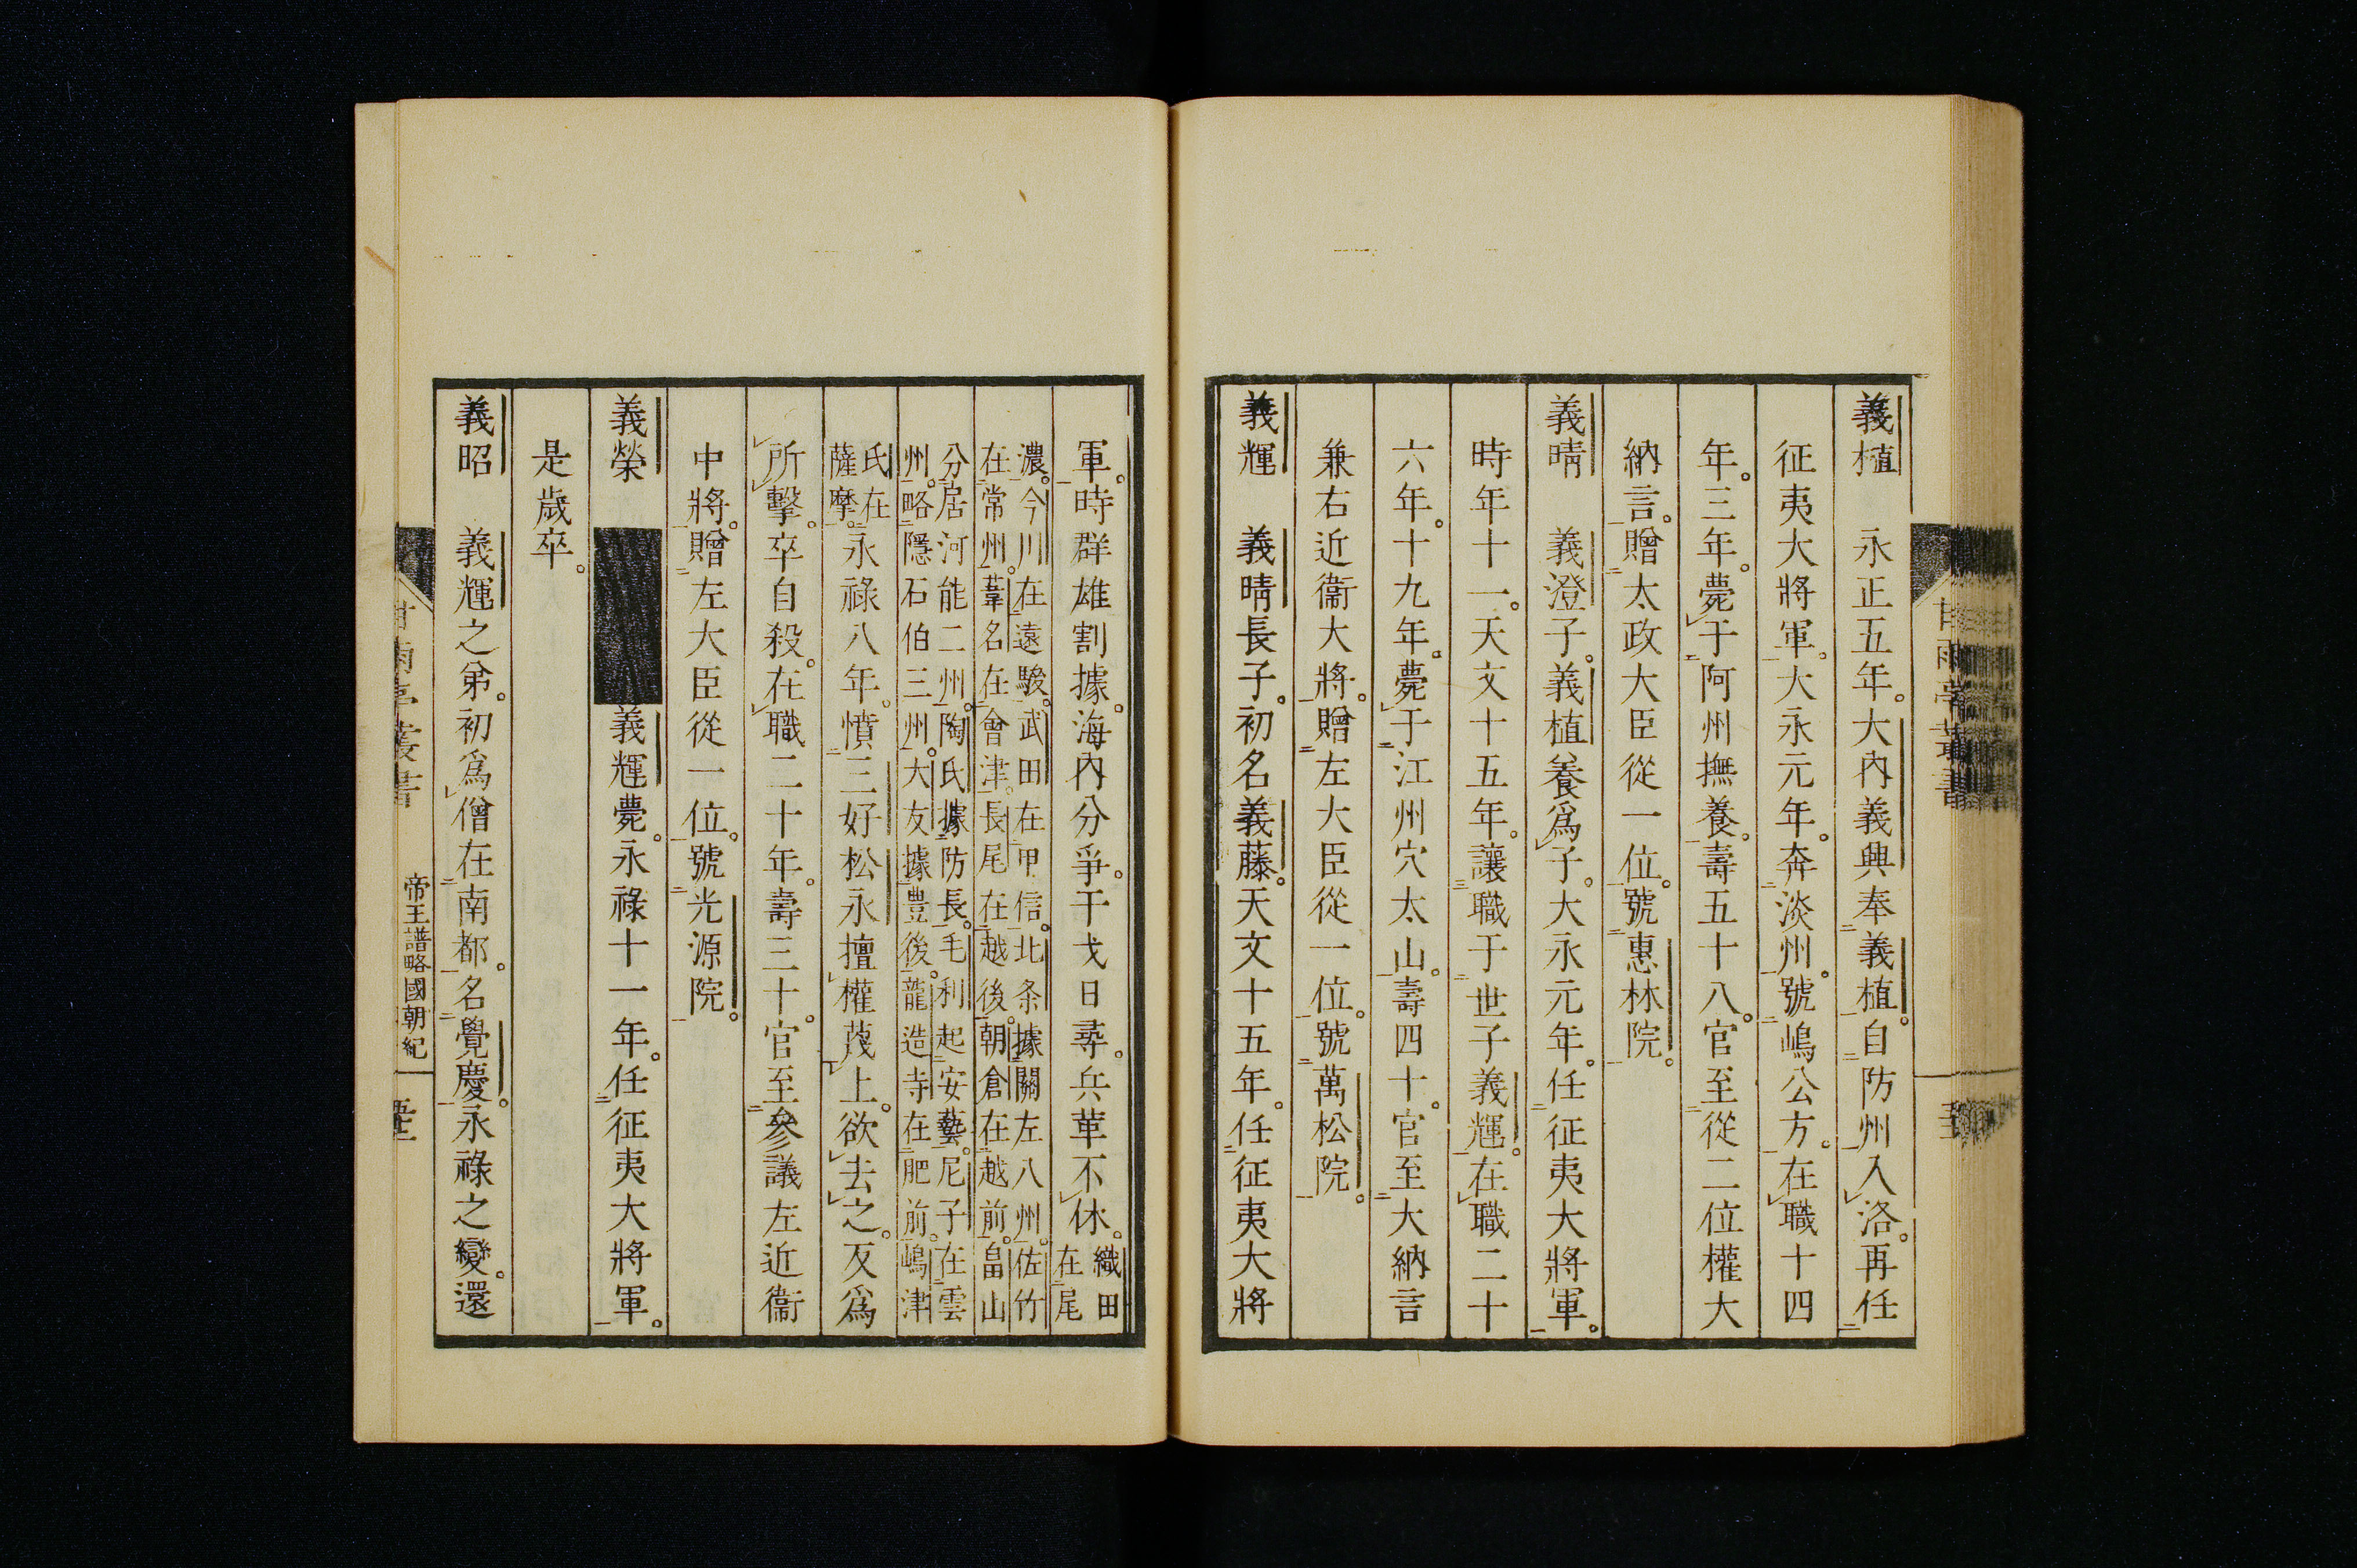 義植　永正五年。大內義興奉義植。自防州入洛。再任
征夷大將軍。大永元年。奔淡州。號嶋公方。在職十四
年。三年。薨于阿州撫養。壽五十八。官至從二位權大
納言。贈太政大臣從一位。號惠林院。
義晴　義澄子。義植養爲子。大永元年。任征夷大將軍。
時年十一。天文十五年。讓職于世子義輝。在職二十
六年。十九年。薨于江州穴太山。壽四十。官至大納言
兼右近衞大將。贈左大臣從一位。號萬松院。
義輝　義晴長子。初名義藤。天文十五年。任征夷大將
軍。時群雄割據。海內分爭。干戈日尋。兵革不休。織田在尾
濃。今川在遠駿。武田在甲信。北条據關左八州。佐竹
在常州。葦名在會津。長尾在越後。朝倉在越前。畠山
分居河能二州。陶氏據防長。毛利起安藝。尼子在雲
州。略隱石伯三州。大友據豊後。龍造寺在肥前。嶋津
氏在薩摩。永祿八年。憤三好松永擅權蔑上。欲去之。反爲
所擊。卒自殺。在職二十年。壽三十。官至參議左近衞
中將。贈左大臣從一位。號光源院。
義榮　義輝薨。永祿十一年。任征夷大將軍。
是歲卒。
義昭　義輝之弟。初爲僧在南都。名覺慶。永祿之變。還
甘雨亭叢書
帝王譜略國朝紀